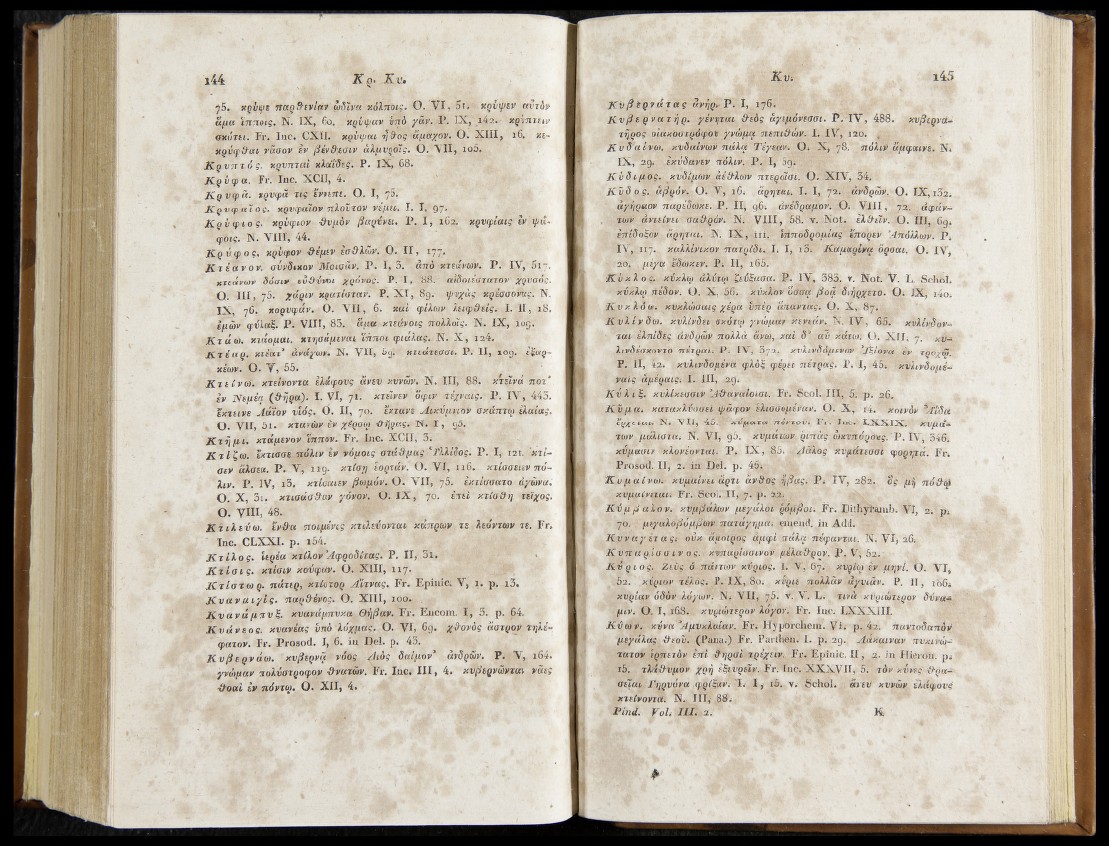 144 Κρ. Κυ.
75. κρύψε παρθενίαν ὠδῖνα κόλποις. O. VI, 51. κρύψεν αὐτὸν
ἅμα ἵπποις. N. IX, 60. κρύψαν ὑπὸ γᾶν. P. IX, 142. κρύπτειν
σκότει. Fr. Inc. CXII. κρύψαι ἦθος ἄμαχον. O. XIII, 16. κε-
κρύφθαι νᾶσον ἐν βένθεσιν ἁλμυροῖς. O. VII, 105.
Κρυπτός. κρυπταὶ κλαΐδες. P. IX, 68.
Κρύφα. Fr. Inc. XCII, 4.
Κρυφᾶ. κρυφᾶ τις ἔννεπε. O. I, 75.
Κρυφαῖος. κρυφαῖον πλοῦτον νέμει. I. I, 97.
Κρύφιος. κρύφιον θυμὸν βαρύνει. P. I, 162. κρυφίαις ἐν ψά-
φοις. N. VIII, 44.
Κρύφος. κρύφον θέμεν ἐσθλῶν. O. II, 177.
Κτέανον. σύνδικον Μοισᾶν. P. I, 3. ἀπὸ κτεάνων. P. IV, 517.
κτεάνων δόσιν εὐθύνοι χρόνος. P. I, 88. αἰδοιέστατον χρυσός.
O. III, 75. χάριν κρατίσταν. P. XI, 89. ψυχὰς κρέσσονας. N.
IX, 76. κορυφάν. O. VII, 6. καὶ φίλων λειφθείς. I. II, 18.
ἐμῶν φύλαξ. P. VIII, 83. ἅμα κτεάνοις πολλοῖς. N. IX, 109.
Κτάω. κτάομαι. κτησάμεναι ἵπποι φιάλας. N. X, 124.
Κτέαρ. κτέατ' ἀνάγων. N. VII, 59. κτεάτεσσι. P. II, 109. ἐξαρ-
κέων. O. V, 55.
Κτείνω. κτείνοντα ἐλάφους ἄνευ κυνῶν. N. III, 88. κτεῖνά ποτ'
ἐν Νεμέᾳ (θῆρα). I. VI, 71. κτεῖνεν ὄφιν τέχναις. P. IV, 443.
ἔκτεινε Λαΐον υἱός. O. II, 70. ἔκτανε Λικύμνιον σκάπτῳ ἐλαίας.
O. VII, 51. κτανὼν ἐν χέρσῳ θῆρας. N. I, 95.
Κτῆμι. κτάμενον ἵππον. Fr. Inc. XCII, 3.
Κτίζω. ἔκτισσε πόλιν ἐν νόμοις στάθμας Ὑλλίδος. P. I, 121. κτί-
σεν ἄλσεα. P. V, 119. κτίσῃ ἑορτάν. O. VI, 116. κτίσσειεν πό-
λιν. P. IV, 13. κτίσαιεν βωμόν. O. VII, 75. ἐκτίσσατο ἀγῶνα.
O. X, 31. κτισάσθαν γόνον. O. IX, 70. ἐπεὶ κτίσθη τεῖχος.
O. VIII, 48.
Κτιλεύω. ἔνθα ποιμένες κτιλεύονται κάπρων τε λεόντων τε. Fr.
Inc. CLXXI. p. 154.
Κτίλος. ἱερέα κτίλον Ἀφροδίτας. P. II, 31.
Κτίσις. κτίσιν κούφαν. O. XIII, 117.
Κτίστωρ. πάτερ, κτίστορ Αἴτνας. Fr. Epinic. V, 1. p. 13.
Κυαναιγίς. παρθένος. O. XIII, 100.
Κυανάμπυξ. κυανάμπυκα Θήβαν. Fr. Encom. I, 3. p. 64.
Κυάνεος. κυανέας ὑπὸ λόχμας. O. VI, 69. χθονὸς ἄστρον τηλέ-
φατον. Fr. Prosod. I, 6. in Del. p. 45.
Κυβερνάω. κυβερνᾷ νόος Διὸς δαίμον' ἀνδρῶν. P. V, 164.
γνώμαν πολύστροφον θνατῶν. Fr. Inc. III, 4. κυβερνῶνται νᾶες
θοαὶ ἐν πόντῳ. O. XII, 4.
Κυ. 145
Κυβερνάτας ἀνήρ. P. I, 176.
Κυβερνατήρ. γένηται θεὸς ἁγεμόνεσσι. P. IV, 488. κυβερνα-
τῆρος οἰακοστρόφου γνώμᾳ πεπιθών. I. IV, 120.
Κυδαίνω. κυδαίνων πάλᾳ Τέγεαν. O. X, 78. πόλιν ἄμφαινε. N.
IX, 29. ἐκύδανεν πόλιν. P. I, 59.
Κύδιμος. κυδίμων ἀέθλων πτεροῖσι. O. XIV, 34.
Κῦδος. ἁβρόν. O. V, 16. ἄρηται. I. I, 72. ἀνδρῶν. O. IX, 132.
ἀγῆραον παρέδωκε. P. II, 96. ἀνέδραμον. O. VIII, 72. ἀφάν-
των ἀντείνει σαθρόν. N. VIII, 58. v. Not. ἐλθεῖν. O. III, 69.
ἐπίδοξον ἄρηται. N. IX, 111. ἱπποδρομίας ἔπορεν Ἀπόλλων. P.
IV, 117. καλλίνικον πατρίδι. I. I, 13. Καμαρίνᾳ ὄρσαι. O. IV,
20. μέγα ἔδωκεν. P. II, 165.
Κύκλος. κύκλῳ ἀλύτῳ ζεύξασα. P. IV, 383. v. Not. V. I. Schol.
κύκλῳ πέδον. O. X. 56. κύκλον ὅσσᾳ βοᾷ διήρχετο. O. IX, 140.
Κυκλόω. κυκλώσαις χέρα ὑπὲρ ἅπαντας. O. X, 87.
Κυλίνδω. κυλίνδει σκότῳ γνώμαν κενεάν. N. IV, 65. κυλίνδον-
ται ἐλπίδες ἀνδρῶν πολλὰ ἄνω, καὶ δ' αὖ κάτω. O. XII, 7. κυ-
λινδέσκοντο πέτραι. P. IV, 372. κυλινδόμενον Ἰξίονα ἐν τροχῷ.
P. II, 42. κυλινδομένα φλὸξ φέρει πέτρας. P. I, 45. κυλινδομέ-
ναις ἁμέραις. I. III, 29.
Κύλιξ. κυλίκεσσιν Ἀθαναίαισι. Fr. Scol. III, 5. p. 26.
Κῦμα. κατακλύσσει ψᾶφον ἑλισσομέναν. O. X, 14. κοινὸν Ἀΐδα
ἔρχεται. N. VII, 45. κύματα πόντου. Fr. Inc. LXXIX. κυμά-
των μάλιστα. N. VI, 95. κυμάτων ῥιπὰς ὠκυπόρους. P. IV, 346.
κύμασιν κλονέονται. P. IX, 85. Δᾶλος κυμάτεσσι φορητά. Fr.
Prosod. II, 2. in Del. p. 45.
Κυμαίνω. κυμαίνει ἄρτι ἄνθος ἥβας. P. IV, 282. ὃς μὴ πόθῳ
κυμαίνεται. Fr. Scol. II, 7. p. 22.
Κύμβαλον. κυμβάλων μεγάλοι ῥόμβοι. Fr. Dithyramb. VI, 2. p.
70. μεγαλορόμβων πατάγημα. emend. in Add.
Κυναγέτας. οὐκ ἄμοιρος ἀμφὶ πάλᾳ πέφανται. N. VI, 26.
Κυπαρίσσινος. κυπαρίσσινον μέλαθρον. P. V, 52.
Κύριος. Ζεὺς ὁ πάντων κύριος. I. V, 67. κυρίῳ ἐν μηνί. O. VI,
52. κύριον τέλος. P. IX, 80. κύριε πολλᾶν ἀγυιᾶν. P. II, 106.
κυρίαν ὁδὸν λόγων. N. VII, 75. v. V. L. τινὰ κυριώτερον δύνα-
μιν. O. I, 168. κυριώτερον λόγον. Fr. Inc. LXXXIII.
Κύων. κύνα Ἀμυκλαίαν. Fr. Hyporchem. VI. p. 42. παντοδαπὸν
μεγάλας θεοῦ. (Pana.) Fr. Parthen. I. p. 29. Λάκαιναν πυκινώ-
τατον ἑρπετὸν ἐπὶ θηρσὶ τρέχειν. Fr. Epinic. II, 2. in Hieron. p.
15. τλάθυμον χρὴ ἐξευρεῖν. Fr. Inc. XXXVII, 5. τὸν κύνες θρα-
σεῖαι Γηρυόνα φρίξαν. I. I, 15. v. Schol. ἄνευ κυνῶν ἐλάφους
κτείνοντα. N. III, 88.
Pind. Vol. III. 2. K